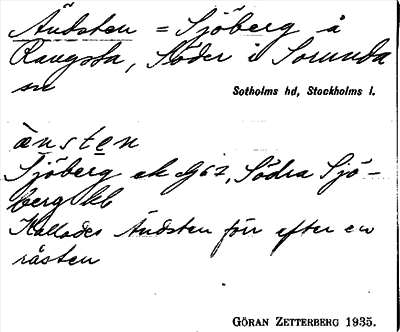 Ändsten = Sjöberg å
Rangsta, Söder i Sorunda
sn
Sotholms hd, Stockholms l.
ànsten
Sjöberg ek G62, Södra Sjö-
berg hb
Kallades Ändsten förr efter en
råsten
GÖRAN ZETTERBERG 1935.